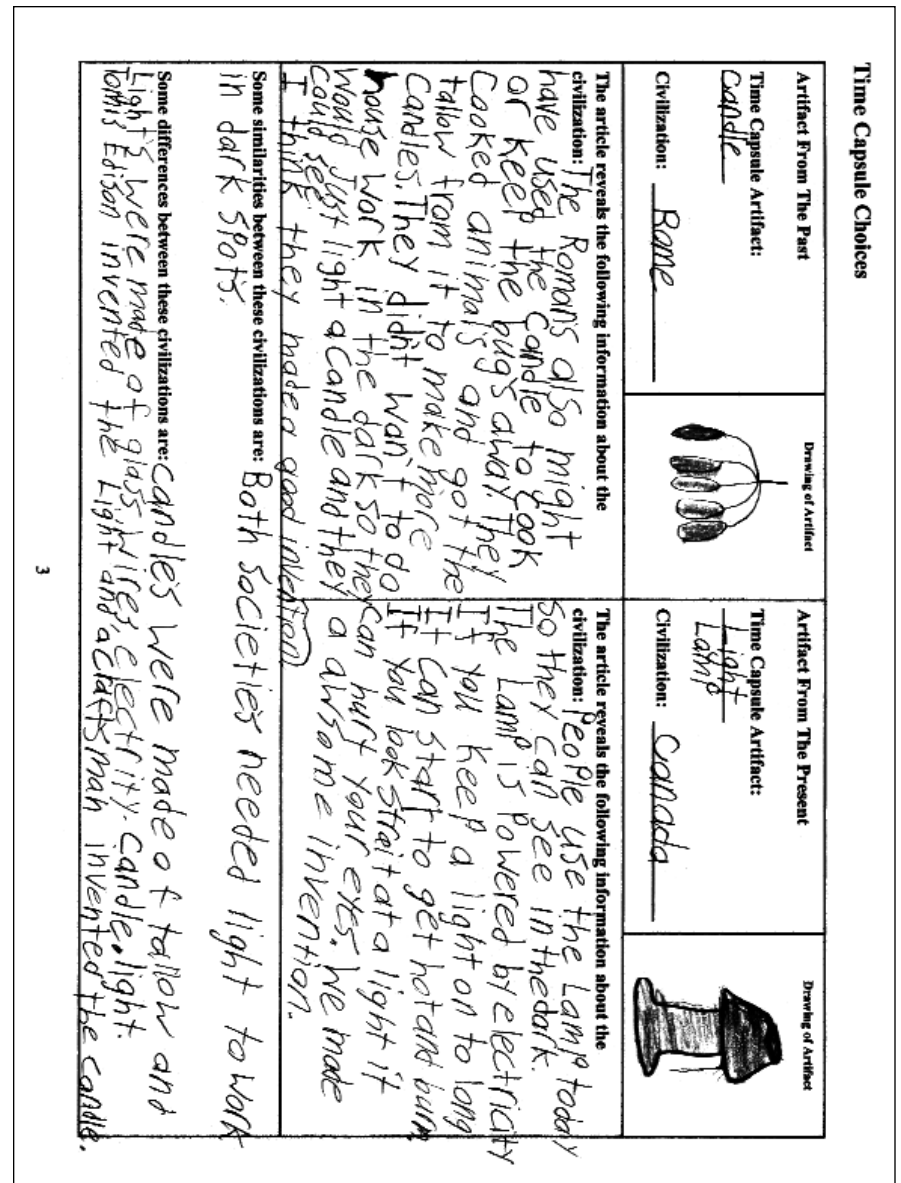 Time Capsule Choices
Artifact From The Past
Time Capsule Artifact:
Candle
Civilization: Rome
Drawing of Artifact
Artifact From The Present
Time Capsule Artifact:
Light
Lamp
Civilization: Canada
Drawing of Artifact
The article reveals the following information about the
civilization: The Romans also might
have used the candle to cook
or keep the bugs away. They
Cooked animals and got the
tallow from it to make more
Candles. They didn't wan't to do
house work in the dark so they
would just light a candle and they
could see.
I think they made a good invention
The article reveals the following information about the
civilization: People use the Lamp today
so they can see in the dark.
The Lamp is Powered by electricity
If you keep a light on to long
It can start to get hot and burn
If you look strait at a light it
can hurt your eyes. We made
a awsome invention.
Some similarities between these civilizations are: Both societies needed light to work
in dark spots.
Some differences between these civilizations are: candles were made of tallow and
Light's were made of glass, wires, electrity. Candle. light.
Tomis Edison invented the Light and a craftsman invented the candle.
3